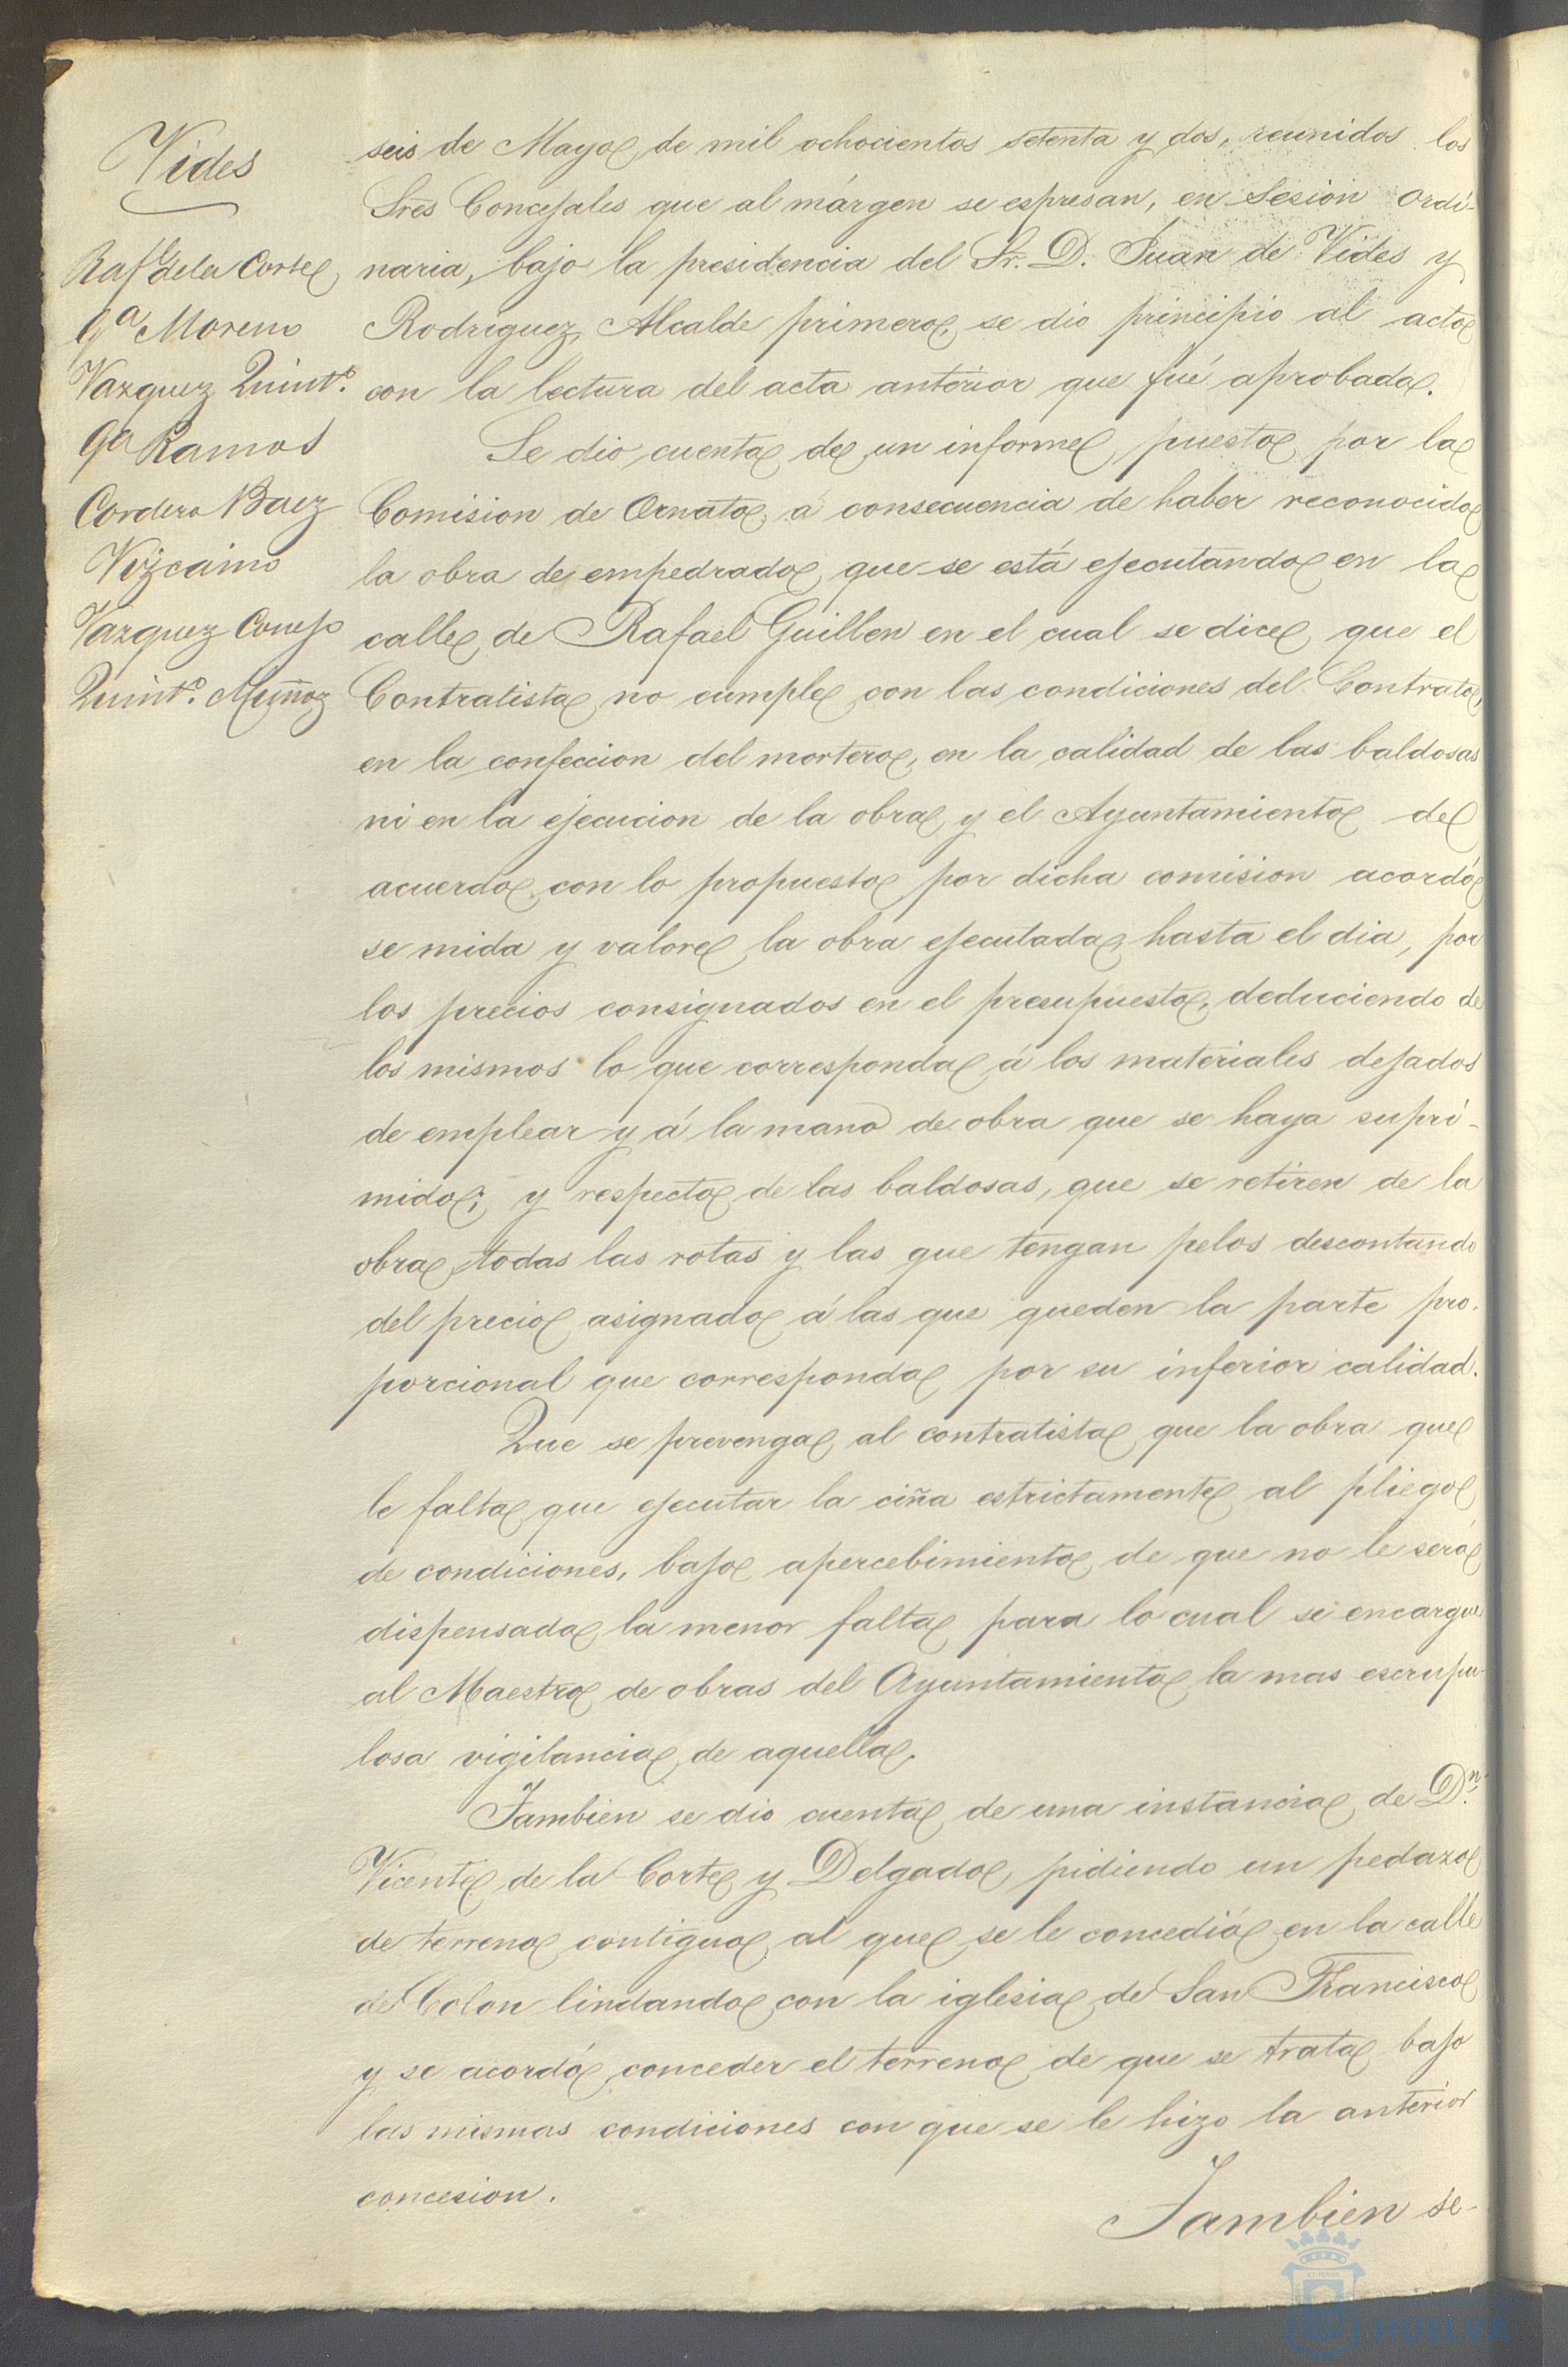 Vides
Raf.l de la Corte
Ga Moreno
Vazquez Quint.o
Ga Ramos
Cordero Baez
Vizcaino
Vazquez Conejo
Quint.o Muñoz
seis de Mayo de mil ochocientos setenta y dos, reunidos los
Sres Concejales que al márgen se espresan, en Sesion ordi-
naria, bajo la presidencia del Sr. D. Juan de Vides y
Rodriguez, Alcalde primero, se dio principio al acto
con la lectura del acta anterior que fué aprobada.
Se dio cuenta de un informe puesto por la
Comision de Ornato, á consecuencia de haber reconocido
la obra de empedrado que se está ejecutando en la
calle de Rafael Guillen en el cual se dice que el
Contratista no cumple con las condiciones del Contrato,
en la confeccion del mortero, en la calidad de las baldosas
ni en la ejecucion de la obra, y el Ayuntamiento de
acuerdo con lo propuesto por dicha comision acordó
se mida y valore la obra ejecutada hasta el dia, por
los precios consignados en el presupuesto, deduciendo de
los mismos lo que corresponda á los materiales dejados
de emplear y á la mano de obra que se haya supri-
mido; y respecto de las baldosas, que se retiren de la
obra todas las rotas y las que tengan pelos descontando
del precio asignado á las que queden la parte pro-
porcional que corresponda por su inferior calidad.
Que se prevenga al contratista que la obra que
le falta que ejecutar la ciña estrictamente al pliego
de condiciones, bajo apercebimiento de que no le será
dispensada la menor falta para lo cual se encargue
al Maestro de obras del Ayuntamiento la mas escrupu-
losa vigilancia de aquella.
Tambien se dio cuenta de una instancia de D.n
Vicente de la Corte y Delgado, pidiendo un pedazo
de terreno contiguo al que se le concedió en la calle
de Colon lindando con la iglesia de San Francisco
y se acordó conceder el terreno de que se trata bajo
las mismas condiciones con que se le hizo la anterior
concesion.
Tambien se-
HUELVA